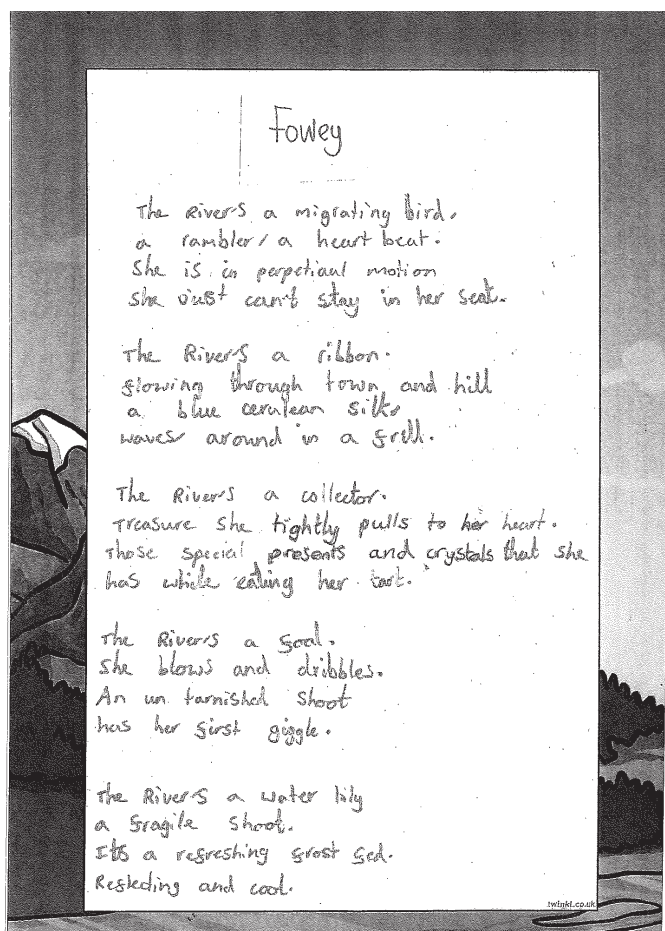 Fowey
The River's a migrating bird,
a rambler, a heart beat.
She is in perpetiaul motion
She just can't stay in her seat.
The River's a ribbon.
flowing through town and hill
a blue cerulean silk,
waves around in a frill.
The River's a collector.
Treasure she tightly pulls to her heart.
Those special presents and crystals that she
has while eating her tart.
The River's a foal.
She blows and dribbles.
An un tarnished shoot
has her first giggle.
The River's a water lily
a fragile shoot.
It's a refreshing frost fed.
Reflecting and cool.
twinkl.co.uk